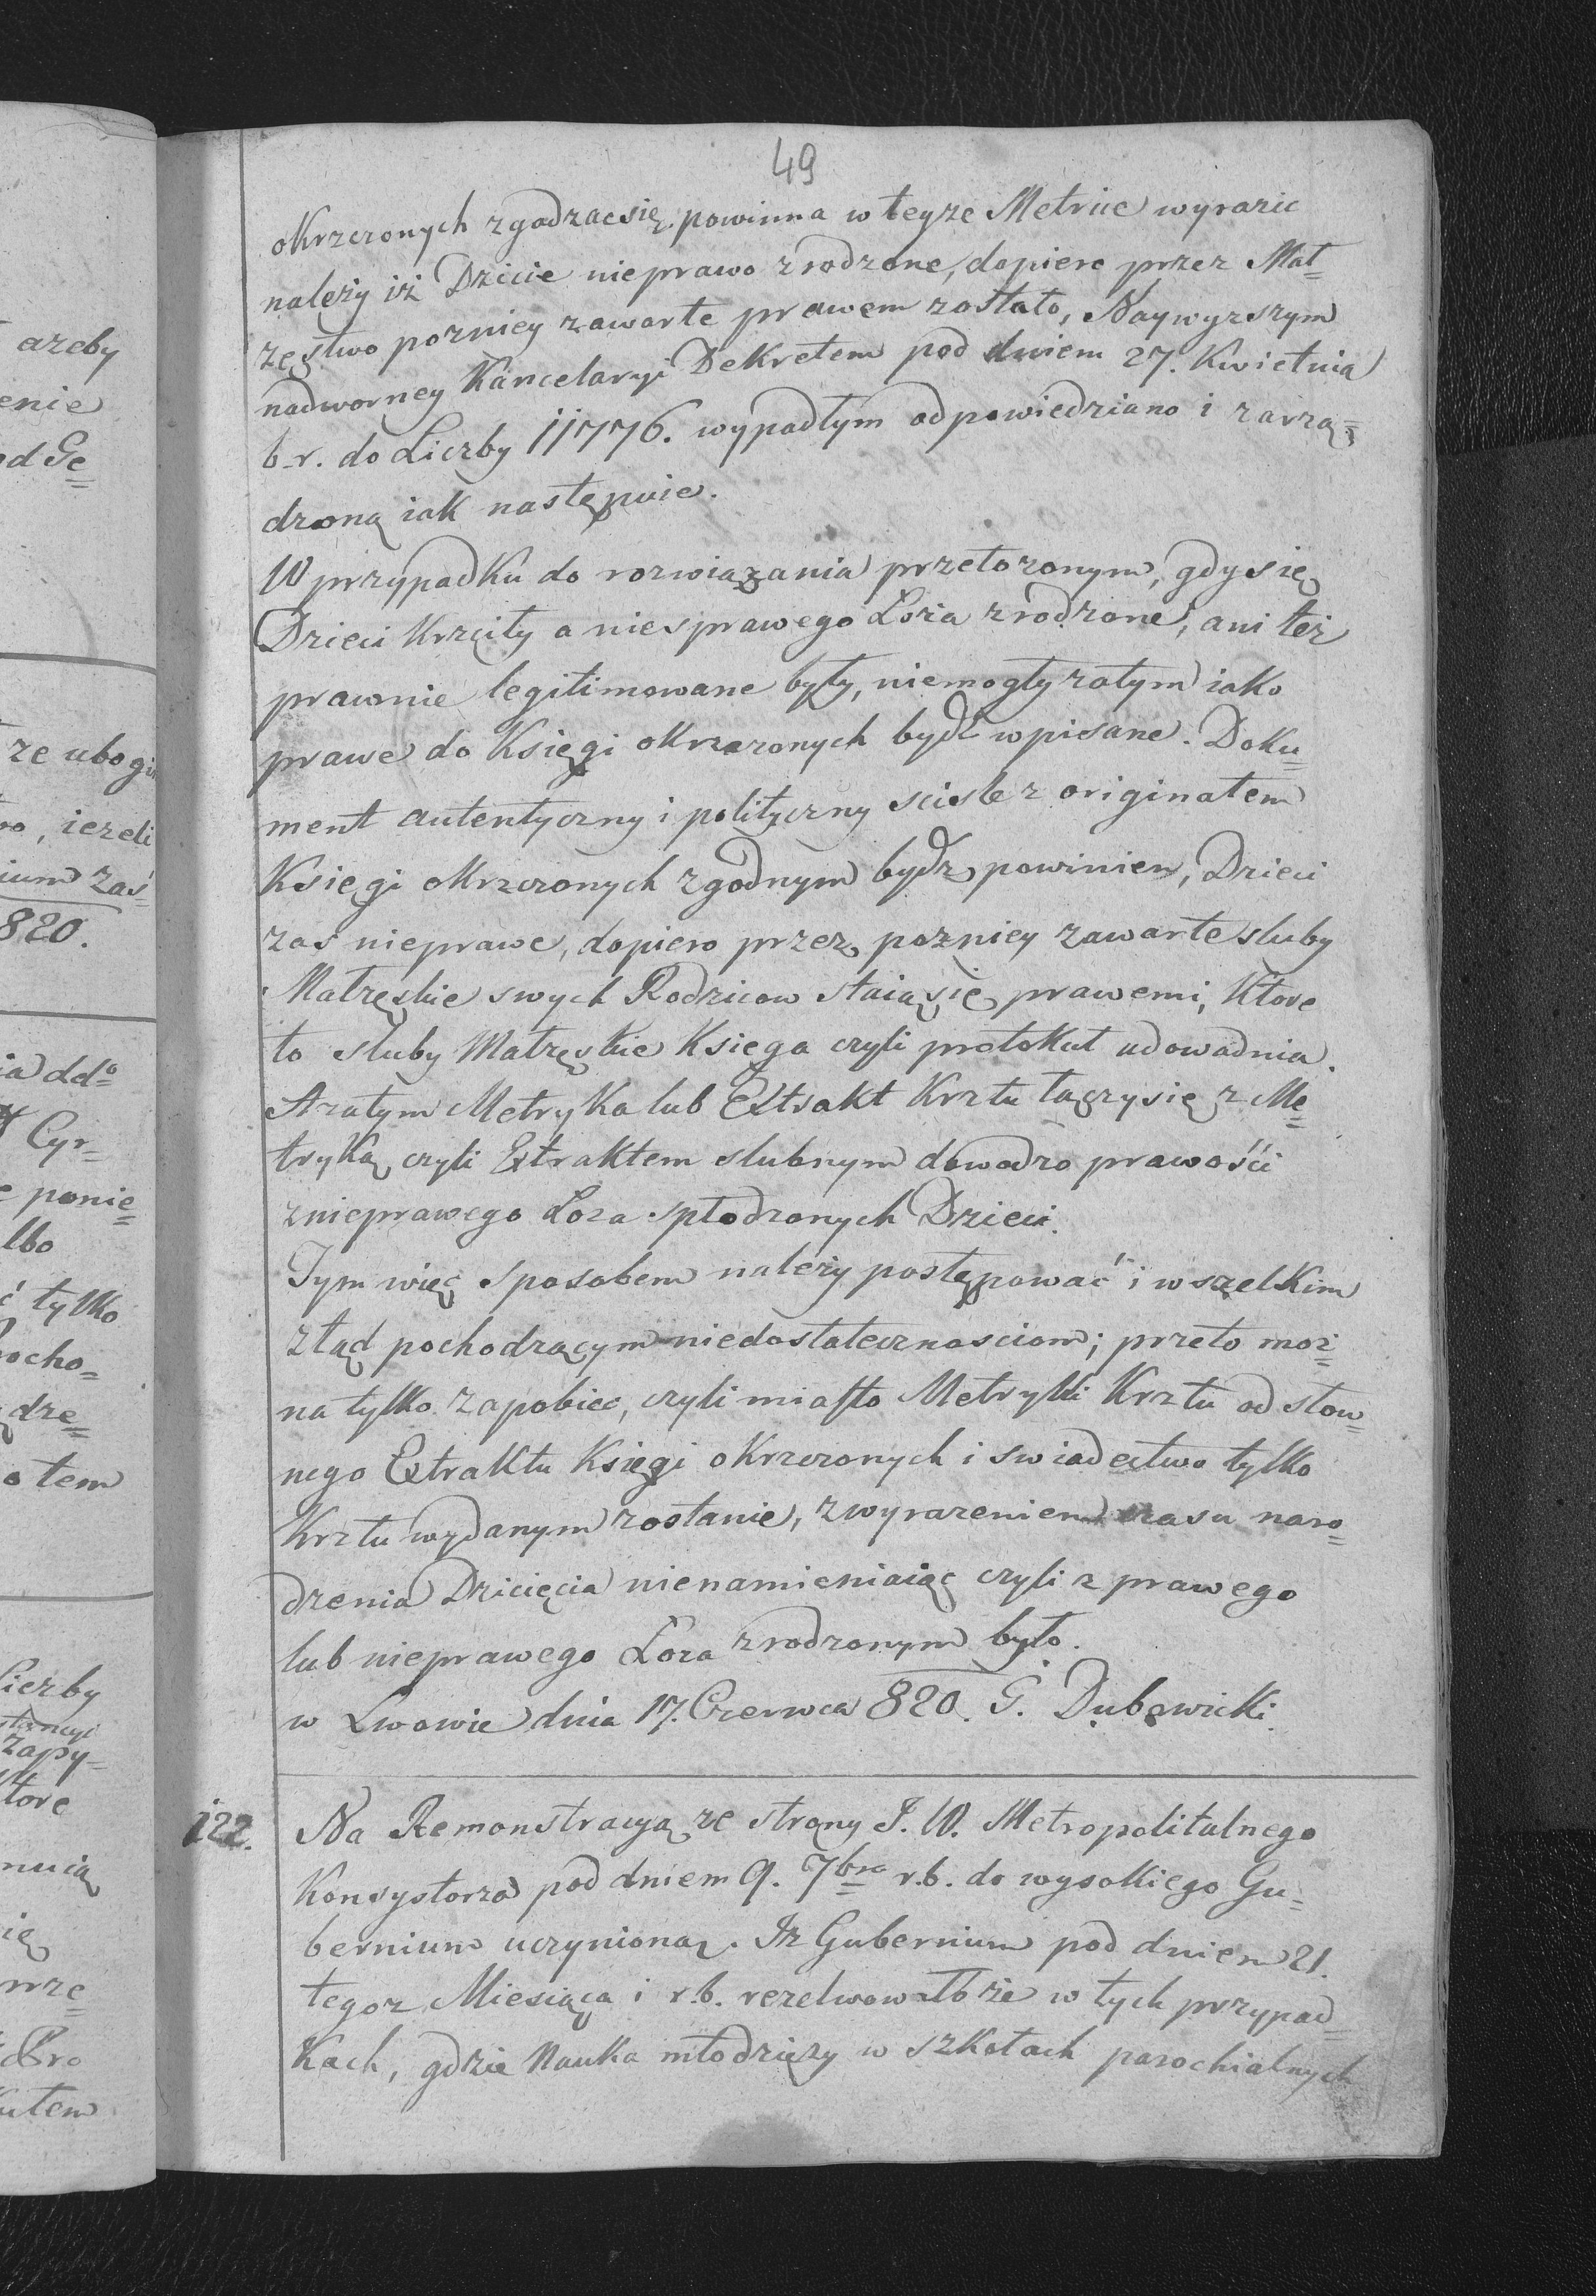 49
okrzczonych zgadzac się powinna w teyze Metrice wyrazic
należy iż Dziecie nieprawo zrodzone, dopiero przez Mał=
zęstwo pozniey zawarte prawem zostało, Naywyzszym
nadworney Kancelaryi Dekretem pod dniem 27. Kwietnia
b.r. do Liczby 11776. wypadłym odpowiedziano i zarzą=
dzoną iak następuie.
W przypadku do rozwiązania przełozonym, gdy się
Dzieci krzciły a niesprawego Łoża zrodzone, ani też
prawnie legitimowane były, niemogły zatym iako
prawe do Księgi okrzczonych bydź wpisane. Doku=
ment autentyczny i polityczny scisle z originałem
Księgi okrzczonych zgodnym bydz powinien, Dzieci
zas nieprawe, dopiero przez pozniey zawarte sluby
Małzęskie swych Rodzicow staią się prawemi, ktore
to sluby Małzęskie Księga czyli protokuł udowadnia.
A zatym Metryka lub Extrakt Krztu łączy się z Me=
tryką czyli Extraktem slubnym dowodzo prawośći
znieprawego Łoza spłodzonych Dzieci.
Tym więc sposobem należy postępować i wszelkim
ztąd pochodzącym niedostatecznosciom; przeto moż=
na tylko zapobiec, czyli miasto Metryki Krztu od słow=
nego Extraktu Księgi okrzczonych i swiadectwo tylko
Krztu wydanym zostanie, z wyrazeniem czasu naro=
dzenia Dziecięcia nienamieniaiąc czyli z prawego
lub nieprawego Łoza zrodzonym było.
w Lwowie dnia 17. Czerwca 820. G. Dubowicki.
122. Na Remonstracyą ze strony J. W. Metropolitalnego
Konsystorza pod dniem 9. 7bra r.b. do wysokiego Gu=
bernium uczynioną. Iz Gubernium pod dniem 21.
tegoz Miesiąca i r.b. rezelwowało że w tych przypad=
kach, gdzie Nauka młodzięzy w szkołach parochialnych
azeby
enie
od Ge=
ze ubogi
ro, iezeli
ium zaś
820.
ia ddo
Cyr=
ponie=
lbo
ć tylko
ocho=
dze=
o tem
Liczby
zapy=
tore
nuią
ię
utem